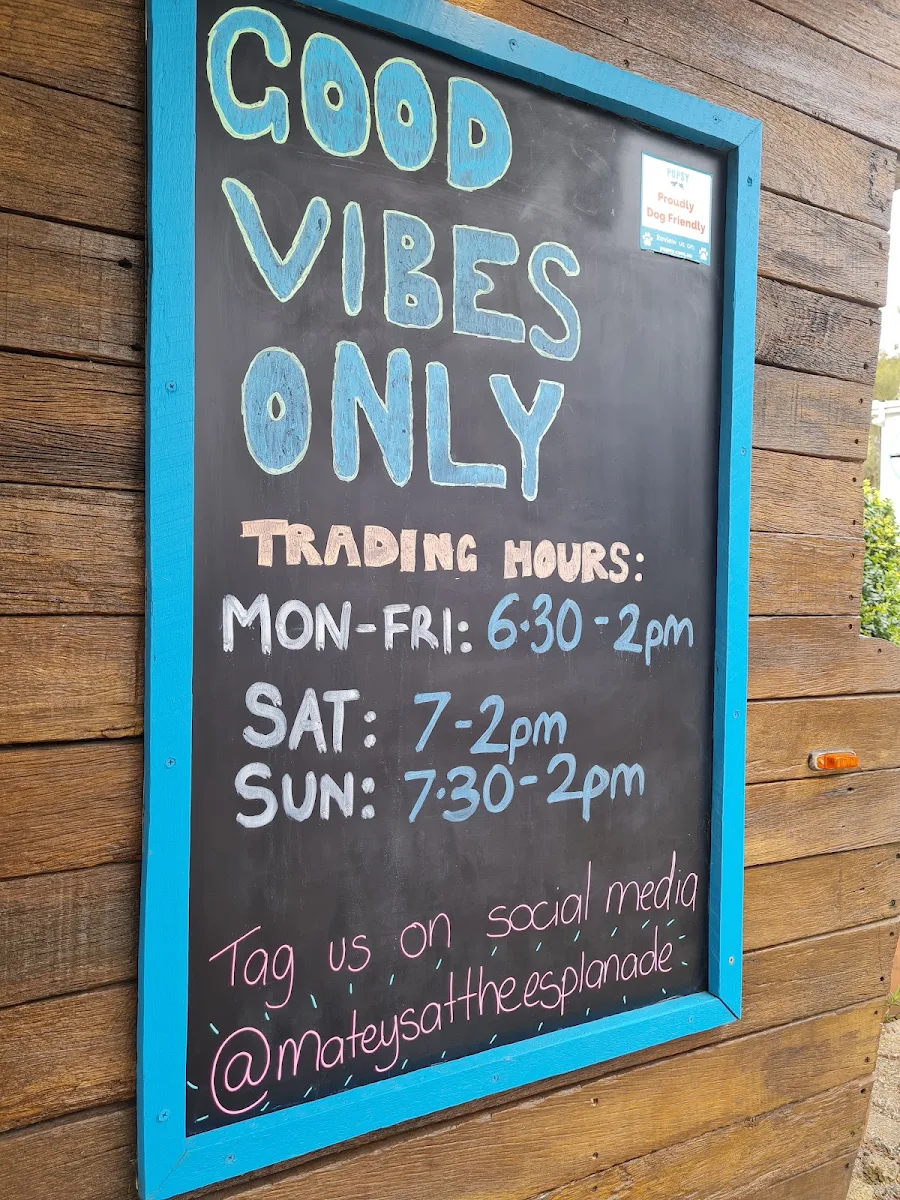 GOOD
VIBES
ONLY
PUPSY
Proudly
Dog Friendly
Review us on
pupsy.com.au
TRADING HOURS:
MON-FRI: 6.30-2pm
SAT: 7-2pm
SUN: 7.30-2pm
Tag us on social media
@mateysattheesplanade